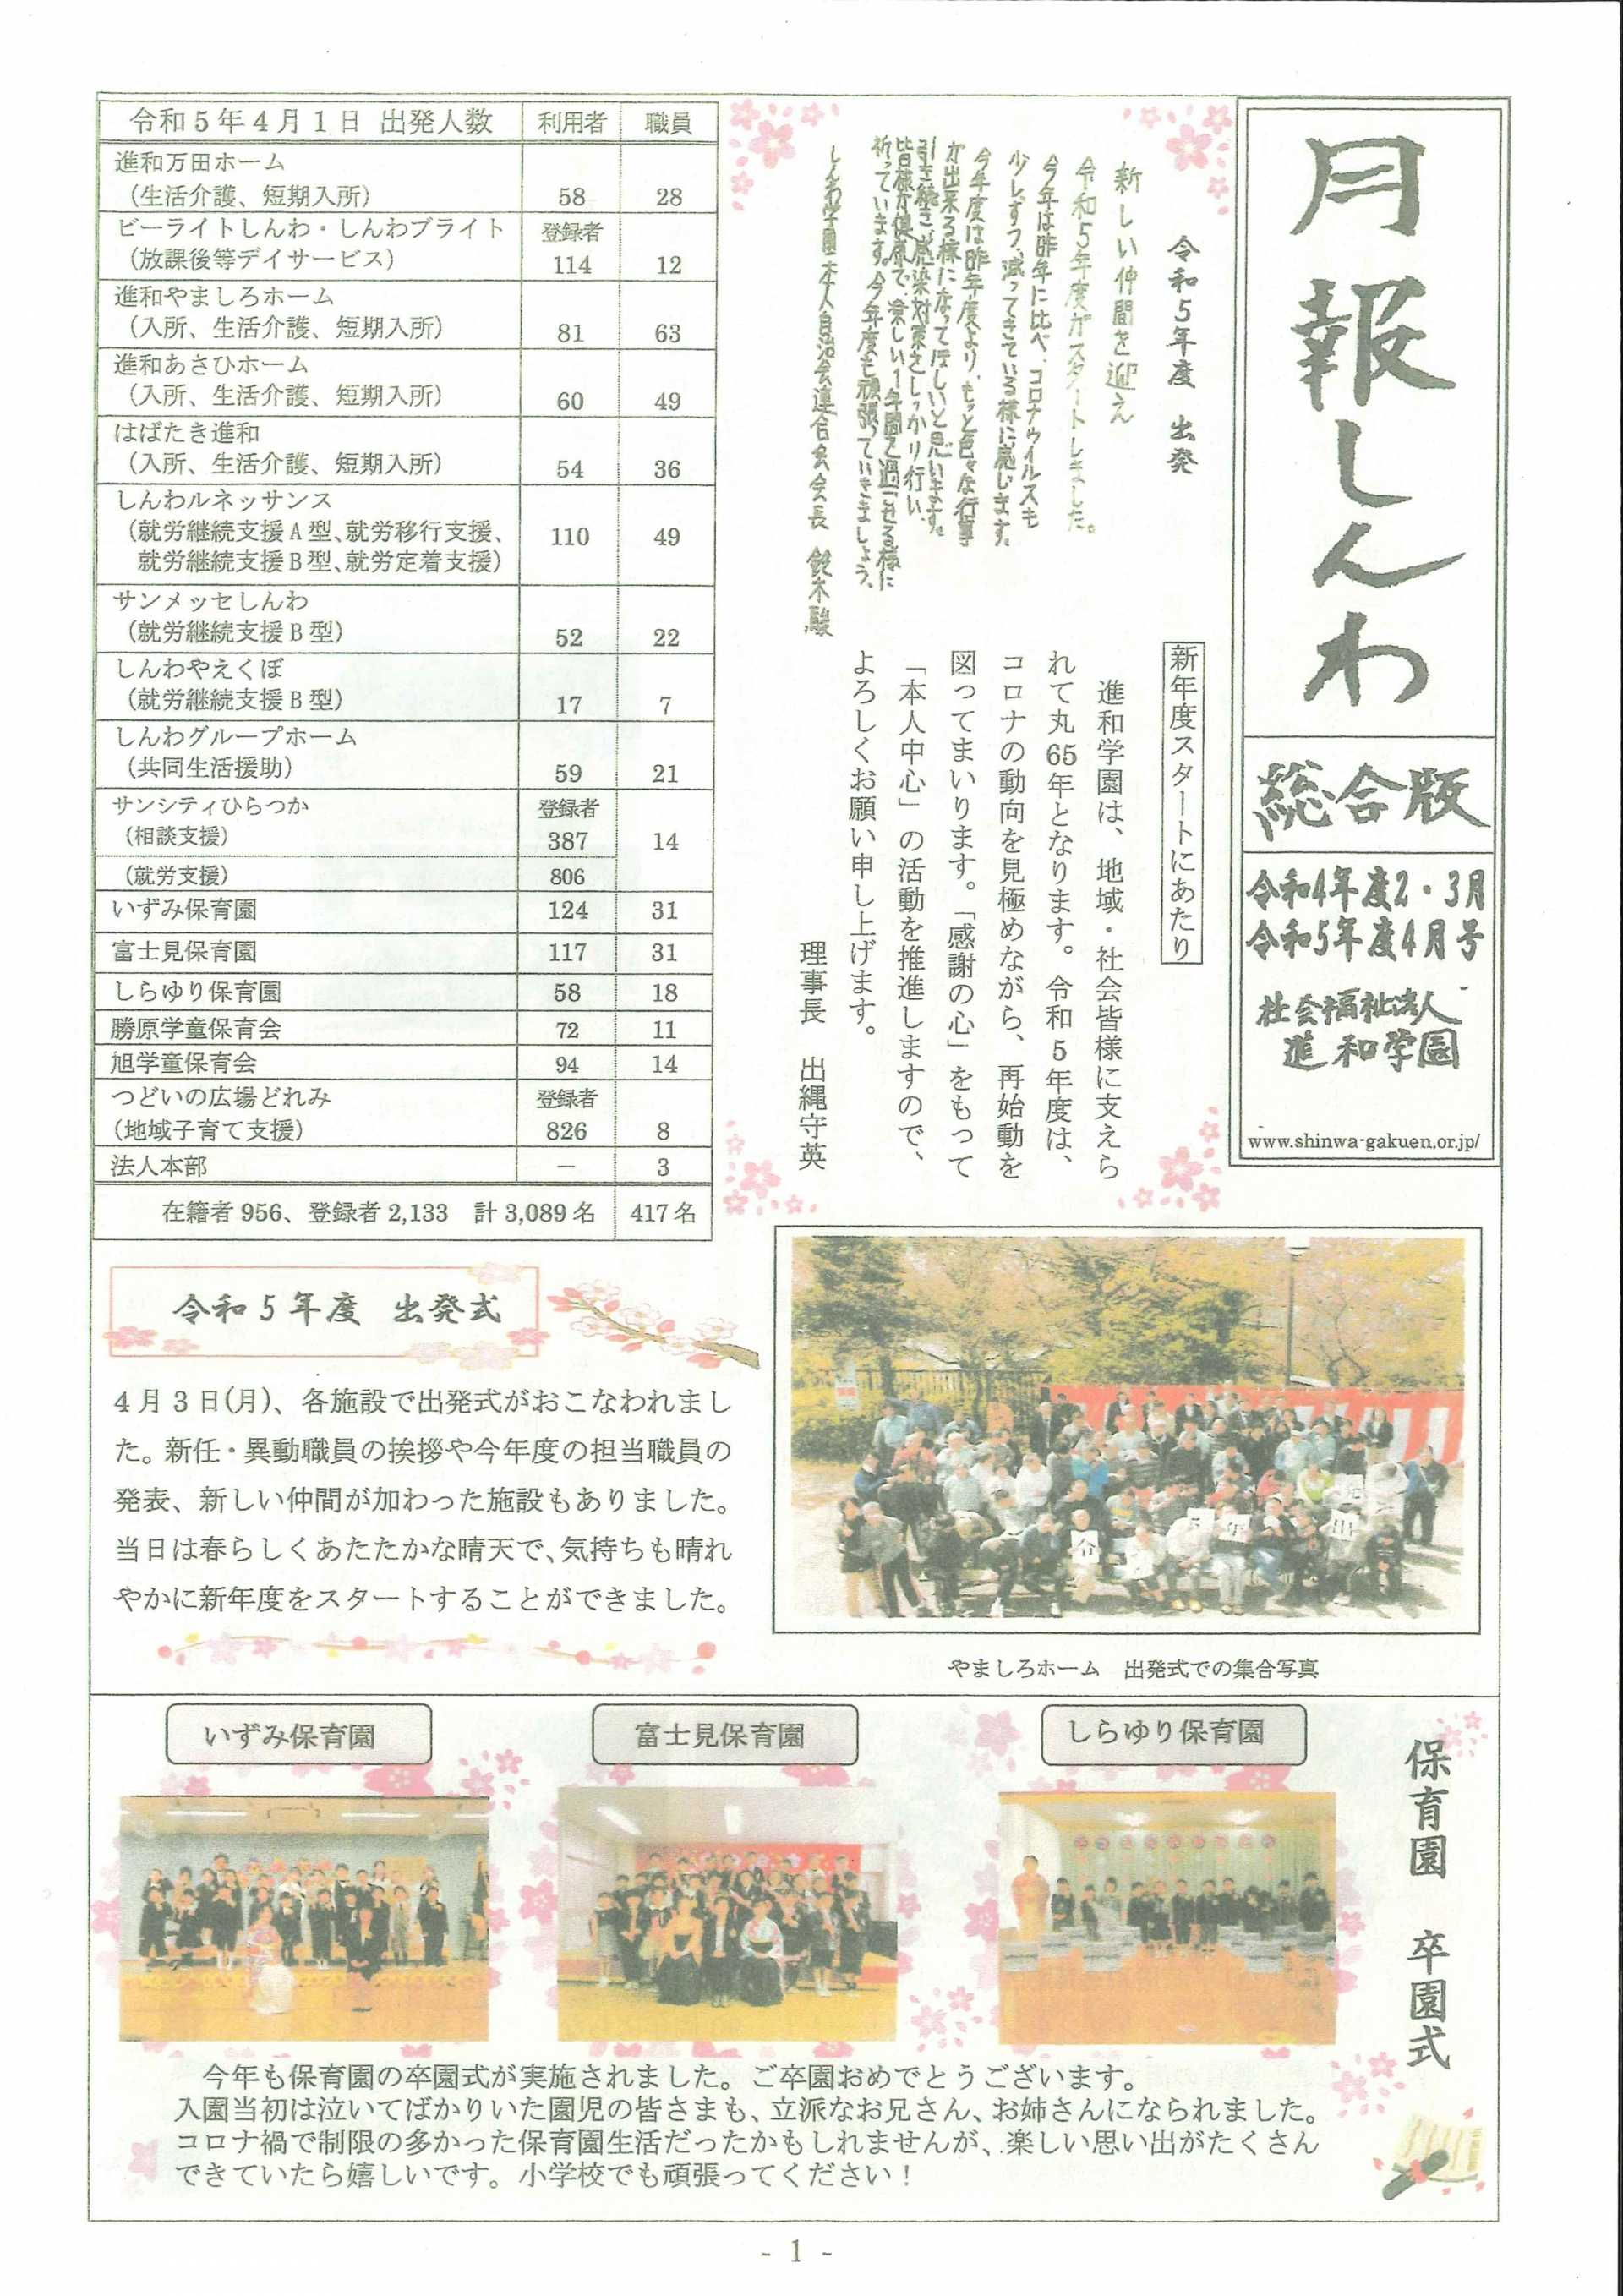 月報しんわ
総合版
令和4年度2・3月
令和5年度4月号
社会福祉法人
進和学園
www.shinwa-gakuen.or.jp/
令和5年度 出発
新しい仲間を迎え
令和5年度がスタートしました。
今年は昨年に比べ、コロナウイルスも
少しずつ減ってきている様に感じます。
今年度は昨年度より、もっと色々な行事
が出来る様になってほしいと思います。
引き続き、感染対策をしっかり行い、
皆様が健康で、楽しい1年間を過ごせる様に
祈っています。今年度も頑張っていきましょう。
しんわ学園本人自治会連合会会長 鈴木駿
新年度スタートにあたり
進和学園は、地域・社会皆様に支えら
れて丸65年となります。令和5年度は、
コロナの動向を見極めながら、再始動を
図ってまいります。「感謝の心」をもって
「本人中心」の活動を推進しますので、
よろしくお願い申し上げます。
理事長 出縄守英
令和5年4月1日 出発人数 利用者 職員
進和万田ホーム
(生活介護、短期入所) 58 28
ビーライトしんわ・しんわブライト 登録者
(放課後等デイサービス) 114 12
進和やましろホーム
(入所、生活介護、短期入所) 81 63
進和あさひホーム
(入所、生活介護、短期入所) 60 49
はばたき進和
(入所、生活介護、短期入所) 54 36
しんわルネッサンス
(就労継続支援A型、就労移行支援、 110 49
就労継続支援B型、就労定着支援)
サンメッセしんわ
(就労継続支援B型) 52 22
しんわやえくぼ
(就労継続支援B型) 17 7
しんわグループホーム
(共同生活援助) 59 21
サンシティひらつか 登録者
(相談支援) 387 14
(就労支援) 806
いずみ保育園 124 31
富士見保育園 117 31
しらゆり保育園 58 18
勝原学童保育会 72 11
旭学童保育会 94 14
つどいの広場どれみ 登録者
(地域子育て支援) 826 8
法人本部 － 3
在籍者956、登録者2,133 計3,089名 417名
令和5年度 出発式
4月3日(月)、各施設で出発式がおこなわれまし
た。新任・異動職員の挨拶や今年度の担当職員の
発表、新しい仲間が加わった施設もありました。
当日は春らしくあたたかな晴天で、気持ちも晴れ
やかに新年度をスタートすることができました。
令
5
年
出
発
やましろホーム 出発式での集合写真
保育園 卒園式
いずみ保育園
富士見保育園
しらゆり保育園
今年も保育園の卒園式が実施されました。ご卒園おめでとうございます。
入園当初は泣いてばかりいた園児の皆さまも、立派なお兄さん、お姉さんになられました。
コロナ禍で制限の多かった保育園生活だったかもしれませんが、楽しい思い出がたくさん
できていたら嬉しいです。小学校でも頑張ってください!
- 1 -